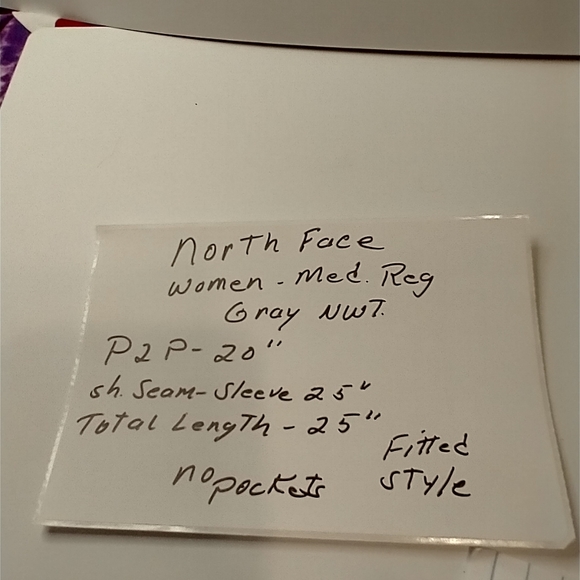 North Face
Women - Med. Reg
Gray NWT.
P2P- 20"
sh. Seam- Sleeve 25"
Total Length - 25"
Fitted
Style
no pockets